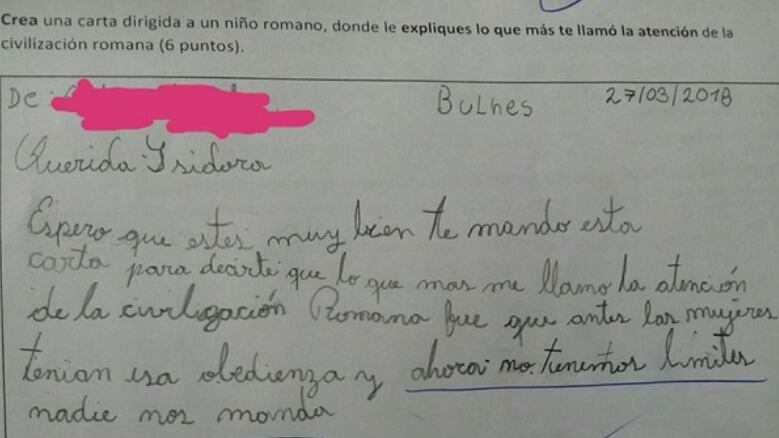 Crea una carta dirigida a un niño romano, donde le expliques lo que más te llamó la atención de la
civilización romana (6 puntos).
De: Bulnes 27/03/2018
Querida: Isidora
Espero que estes muy bien te mando esta
carta para decirte que lo que mas me llamo la atención
de la civiligación Romana fue que antes las mujeres
tenian esa obedienza y ahora no tenemos limites
nadie nos manda